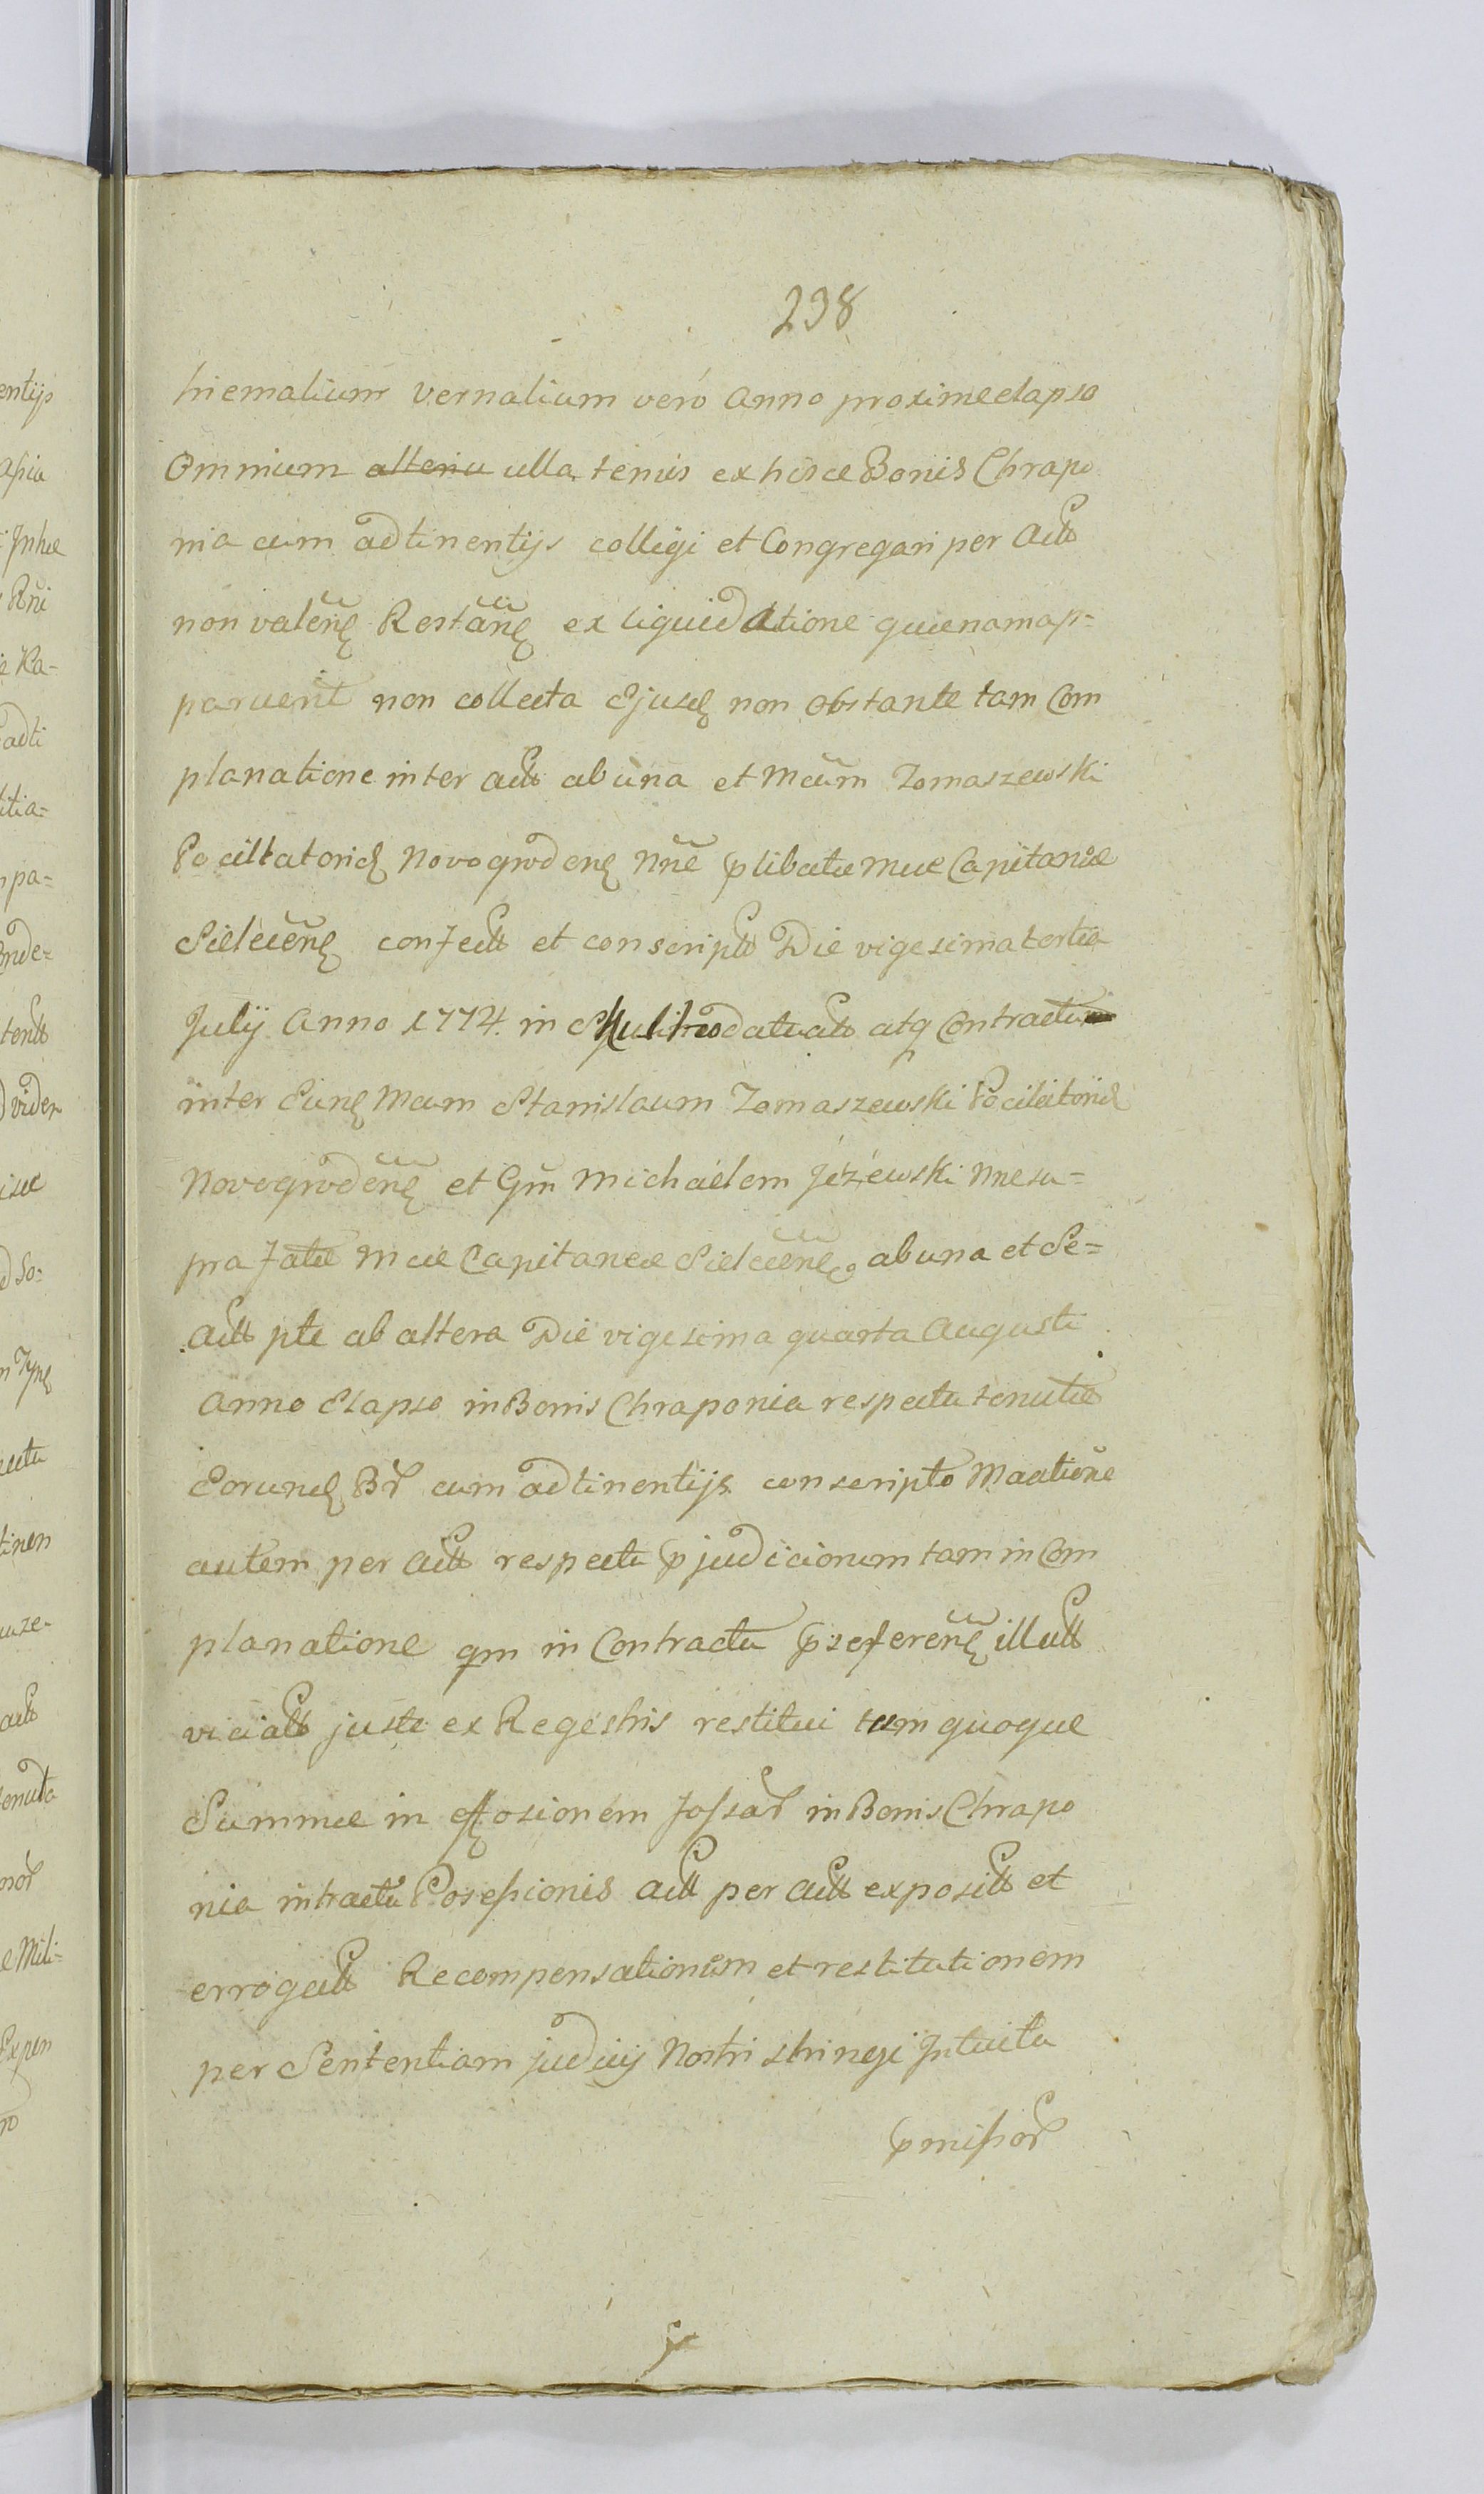 238
hiemalium vernalium vero Anno proxime elapso
Omnium alteriu ulla tenus ex hisce Bonis Chrapo
nia cum adtinentijs colligi et Congregari per Actt
non valen Restan ex liquidatione quænam ap=
paruerit non collecta Ejusd non obstante tam Com
planatione inter Actt ab una et Mcum Tomaszewski
Pocillatorid Novogroden Nne plibatæ Mcæ Capitaneæ
Sielecen confectt et conscriptt Die vigesima tertia
Julij Anno 1774. in datatt atq Contractu
inter Eund Mcum Stanislaum Tomaszewski Pocillatorid
Novogroden et Gm Michaelem Jeżewski Nne su=
pra fatæ Mcæ Capitaneæ Sielecen ab una et Se=
Actt pte ab altera Die vigesima quarta Augusti
Anno Elapso in Bonis Chraponia respectu tenutæ
Eorund Br cum adtinentijs conscripto Maatione
autem per Actt respectu pjudiciorum tam in Com
planatione qm in Contractu pseferen illatt
viciatt juste ex Regestris restitui tum quoque
Summæ in effosionem fossar in Bonis Chrapo
nia in tractu Possessionis Actt per Actt exposittt et
errogatt Recompensationem et restitutionem
per Sententiam judicij Nostri stringi Intuitu
pmissor